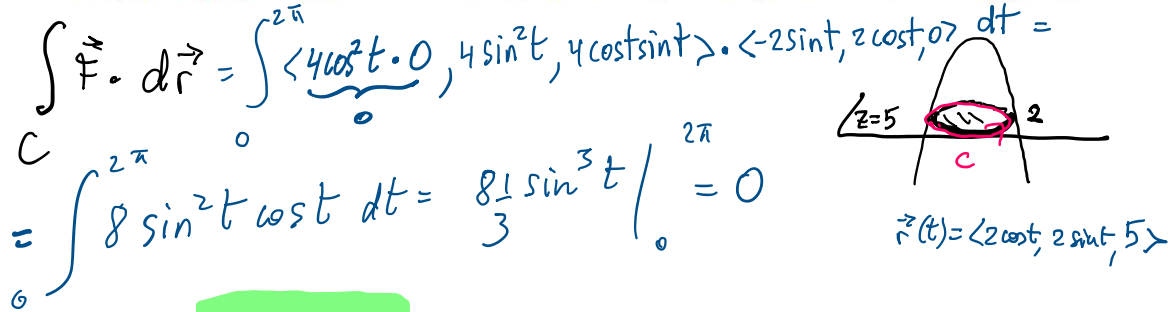 ∫_C F⃗ · dr⃗ = ∫_0^{2π} <4cos²t · 0, 4 sin²t, 4 cost sint> · <-2 sint, 2 cost, 0> dt =
0
z=5
2
C
= ∫_0^{2π} 8 sin²t cost dt = 8 1/3 sin³t |_0^{2π} = 0
r⃗(t) = <2cost, 2 sint, 5>